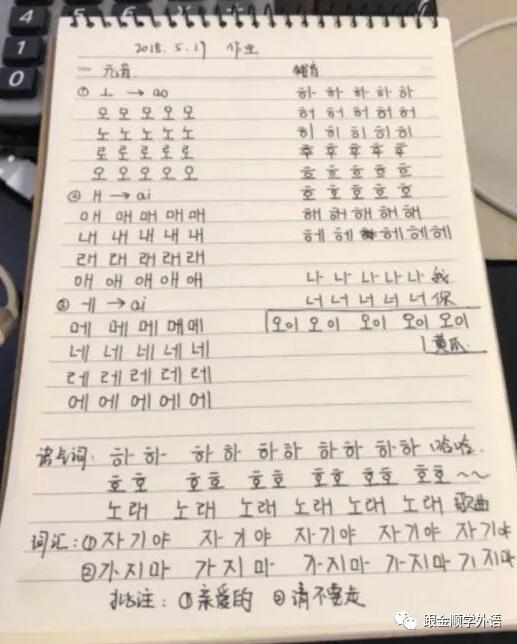 4 5
1
0
2018.5.17 作业
一 元音
① ㅗ → ao
오 오 오 오 오
노 노 노 노 노
로 로 로 로 로
오 오 오 오 오
② ㅐ → ai
애 애 매 매 매
내 내 내 내 내
래 래 래 래 래
애 애 애 애 애
③ ㅔ → ai
메 메 메 메 메
네 네 네 네 네
레 레 레 레 레
에 에 에 에 에
辅音
하 하 하 하 하
허 허 허 허 허
히 히 히 히 히
후 후 후 후 후
흐 흐 흐 흐 흐
호 호 호 호 호
해 해 해 해 해
헤 헤 헤 헤 헤
나 나 나 나 나 我
너 너 너 너 너 你
오이 오이 오이 오이 오이
黄瓜
语气词: 하하 하하 하하 하하 하하 哈哈
호호 호호 호호 호호 호호 호호 ~~
노래 노래 노래 노래 노래 노래 歌曲
词汇: ①자기야 자기야 자기야 자기야 자기야
②가지마 가지마 가지마 가지마 가지마
批注: ①亲爱的 ②请不要走
跟金顺学外语